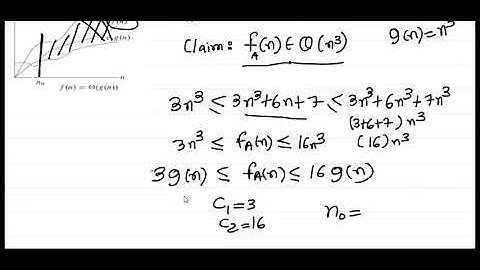 g(n)
n₀
n
f(n) = Θ(g(n))
Claim: f_A(n) ∈ Θ(n³)
g(n) = n³
3n³ ≤ 3n³+6n+7 ≤ 3n³+6n³+7n³
(3+6+7) n³
3n³ ≤ f_A(n) ≤ 16n³ (16) n³
3g(n) ≤ f_A(n) ≤ 16 g(n)
C₁ = 3
C₂ = 16
n₀ =